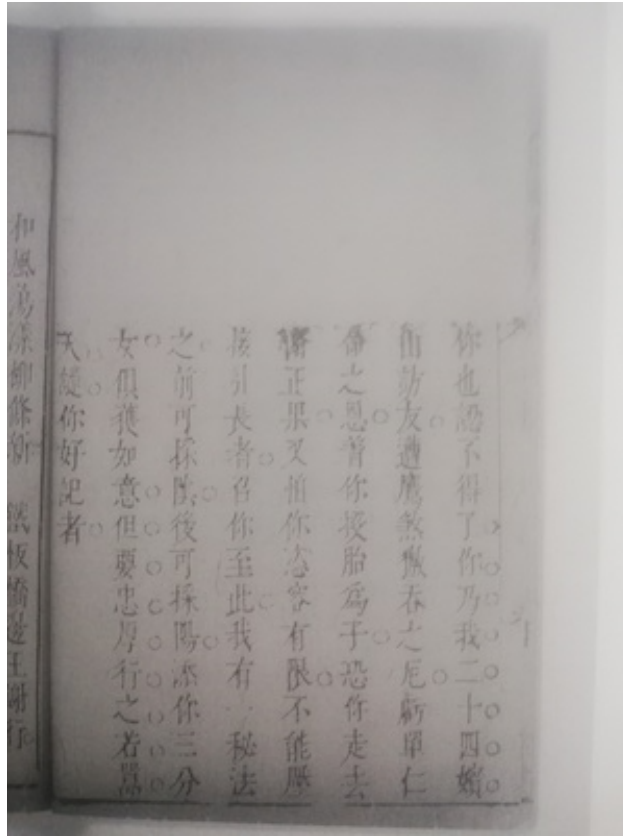 你也認不得了你乃我二十四嬪
訪友遭鷹煞吞之厄虧單仁
之恩你投胎爲子恐你走去
正果又怕你姿容有限不能壓
接引長者召你至此我有一秘法
之前可採陰後可採陽添你三分
女俱獲如意但要忠厚行之若
天譴你好記者
和風蕩漾柳條新 板橋遊王謝行